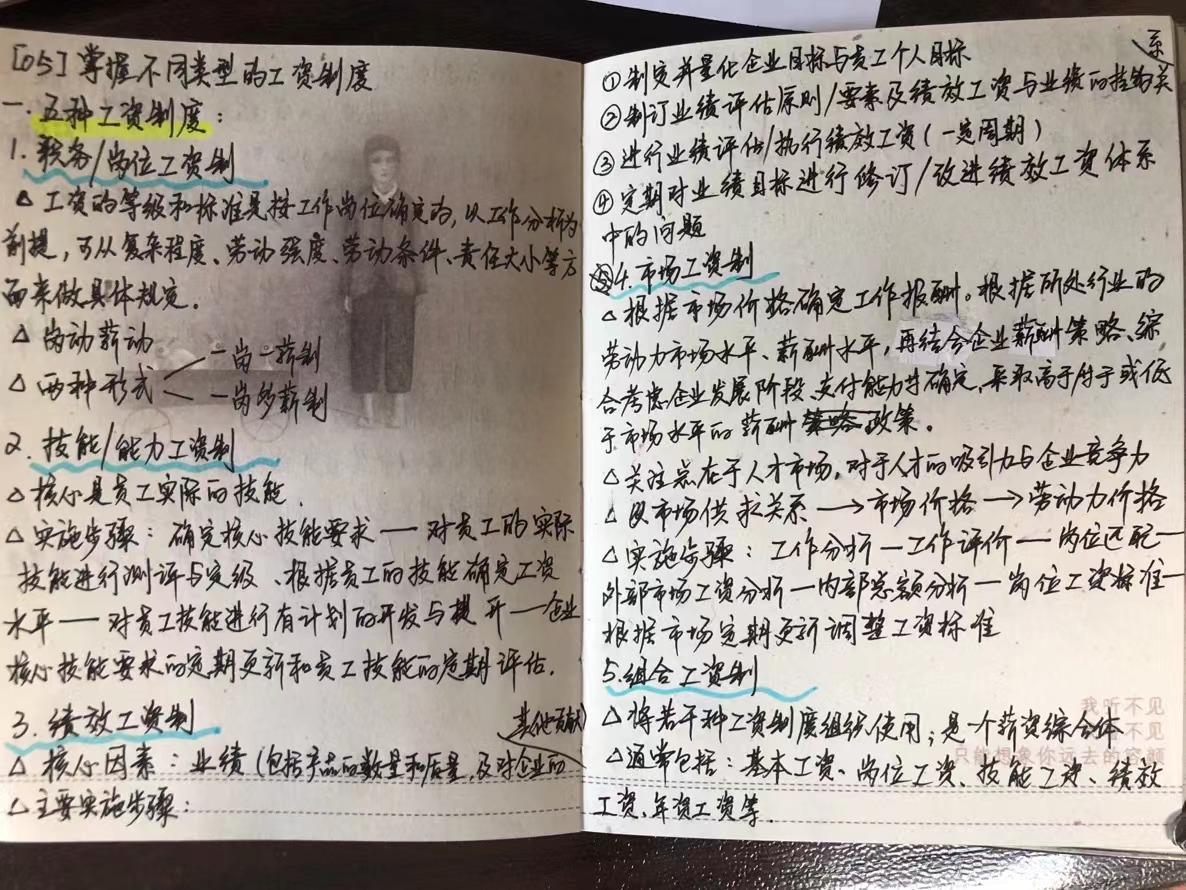 [05] 掌握不同类型的工资制度
一.五种工资制度：
1.职务/岗位工资制
△ 工资的等级和标准是按工作岗位确定的，以工作分析为
前提，可从复杂程度、劳动强度、劳动条件、责任大小等方
面来做具体规定.
△ 岗动薪动
△ 两种形式
一岗一薪制
一岗多薪制
2.技能/能力工资制
△ 核心是员工实际的技能.
△ 实施步骤：确定核心技能要求——对员工的实际
技能进行测评与定级、根据员工的技能确定工资
水平——对员工技能进行有计划的开发与提升——企业
核心技能要求的定期更新和员工技能的定期评估.
3.绩效工资制
其他贡献)
△ 核心因素：业绩(包括产品的数量和质量,及对企业的
△主要实施步骤：
①制定并量化企业目标与员工个人目标
系
②制订业绩评估原则/要素及绩效工资与业绩的挂钩关
③进行业绩评估/执行绩效工资(一定周期)
④定期对业绩目标进行修订/改进绩效工资体系
中的问题
4.市场工资制
△根据市场价格确定工作报酬。根据所处行业的
劳动力市场水平、薪酬水平，再结合企业薪酬策略、综
合考虑企业发展阶段、支付能力等确定,采取高于/等于或低
于市场水平的薪酬政策。
△关注点在于人才市场,对于人才的吸引力与企业竞争力
△ 市场供求关系→市场价格→劳动力价格
△实施步骤：工作分析—工作评价—岗位匹配—
外部市场工资分析—内部总额分析—岗位工资标准—
根据市场定期更新调整工资标准
5.组合工资制
我听不见
△将若干种工资制度组织使用；是一个薪资综合体
不见
只能想像你远去的容颜
△通常包括：基本工资、岗位工资、技能工资、绩效
工资、年资工资等.